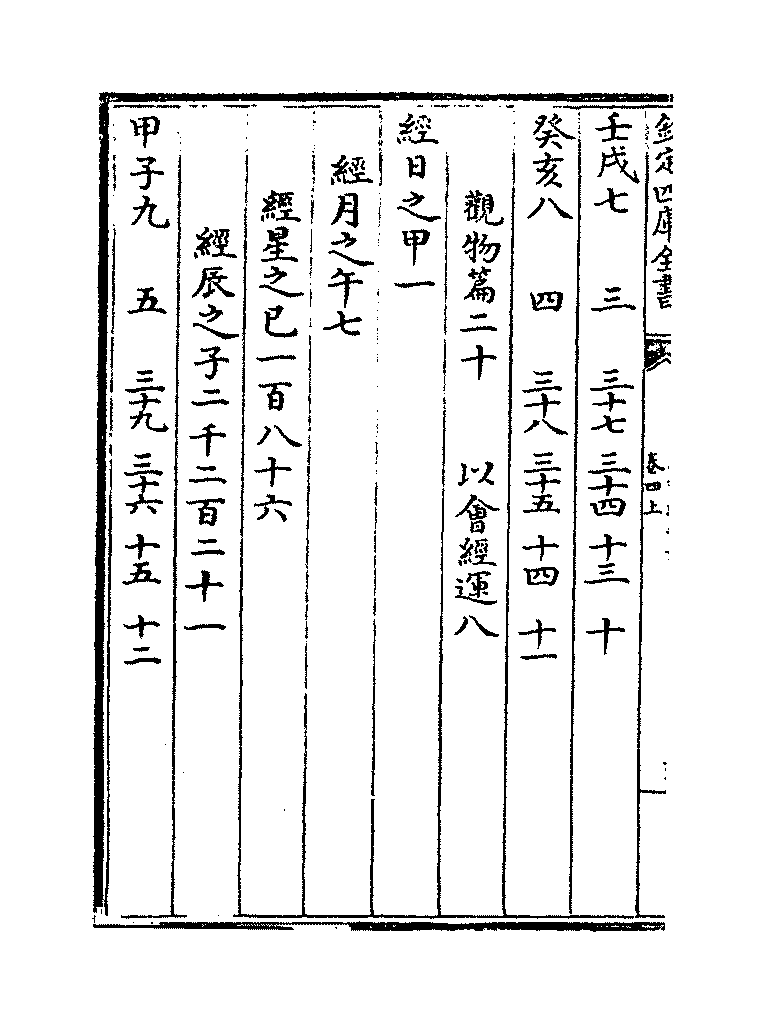 欽定四庫全書
卷四上
壬戌七 三 三十七 三十四 十三 十
癸亥八 四 三十八 三十五 十四 十一
觀物篇二十 以會經運八
經日之甲一
經月之午七
經星之巳一百八十六
經辰之子二千二百二十一
甲子九 五 三十九 三十六 十五 十二